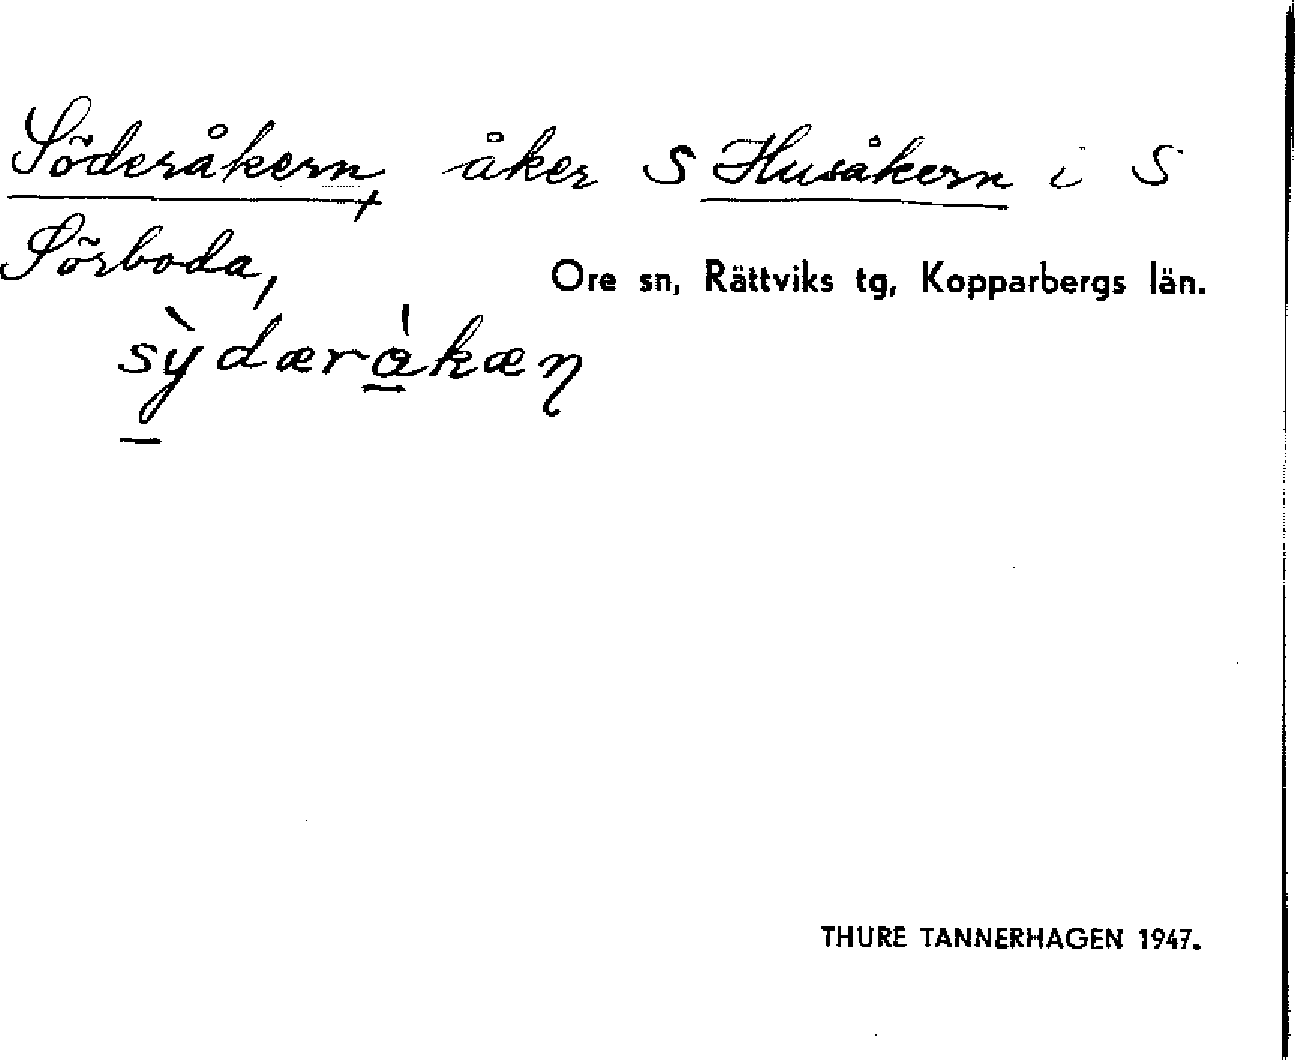 Söderåkern, åker S Husåkern i S
Sörboda,
Ore sn, Rättviks tg, Kopparbergs län.
sỳdæràkæn
THURE TANNERHAGEN 1947.